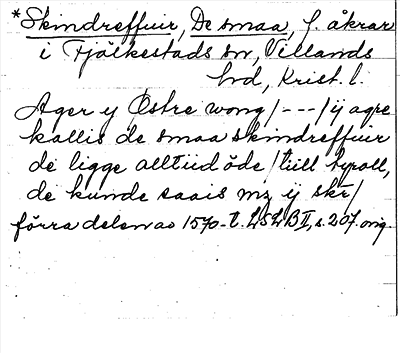 *Skindreffuir, De smaa, f. åkrar
i Fjälkestads sn, Villands
hd, Krist. l.
Ager y Östre wong/---/ij agre
kallis de smaa skindreffuir
de ligge alltiid öde/tiill byroll,
de kunde saais mz ij skr/
förra delen av 1570-t. LSLB II, s. 207. orig.